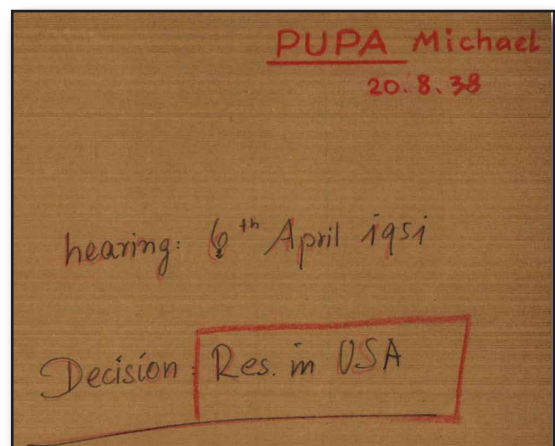 PUPA Michael
20.8.38
hearing: 6th April 1951
Decision: Res. in USA